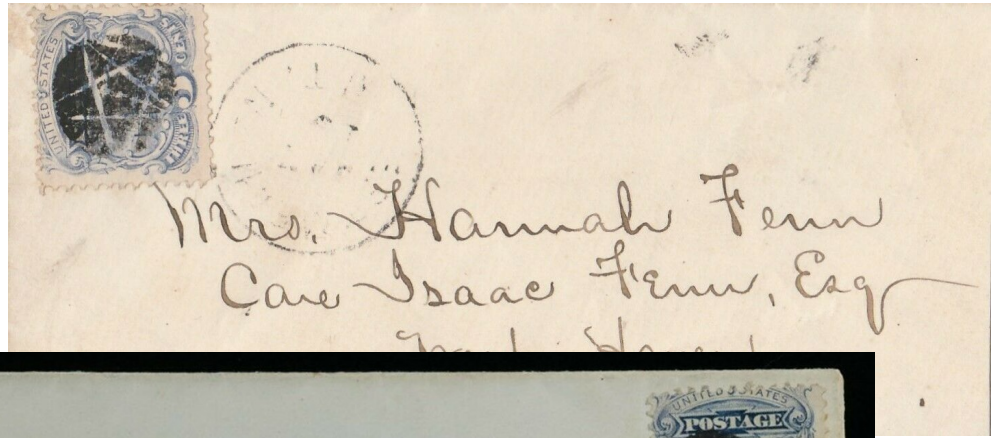 UNITED STATES
THREE CENTS
Mrs. Hannah Fenn
Care Isaac Fenn, Esq
UNITED STATES
POSTAGE